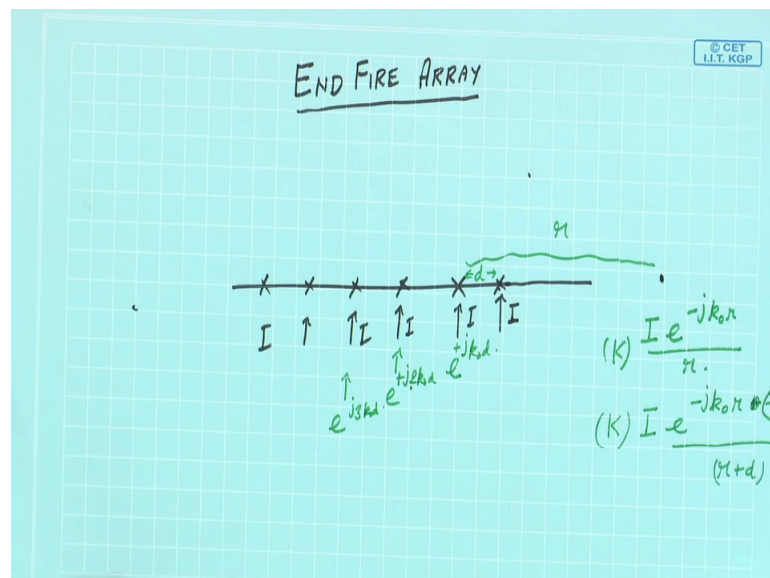 © CET
I.I.T. KGP
END FIRE ARRAY
r
d
I ↑ ↑I ↑I ↑I ↑I
e^{j3k₀d} e^{+j2k₀d} e^{+jk₀d}
(K) I e^{-jk₀r} / r
(K) I e^{-jk₀r} / (r+d)